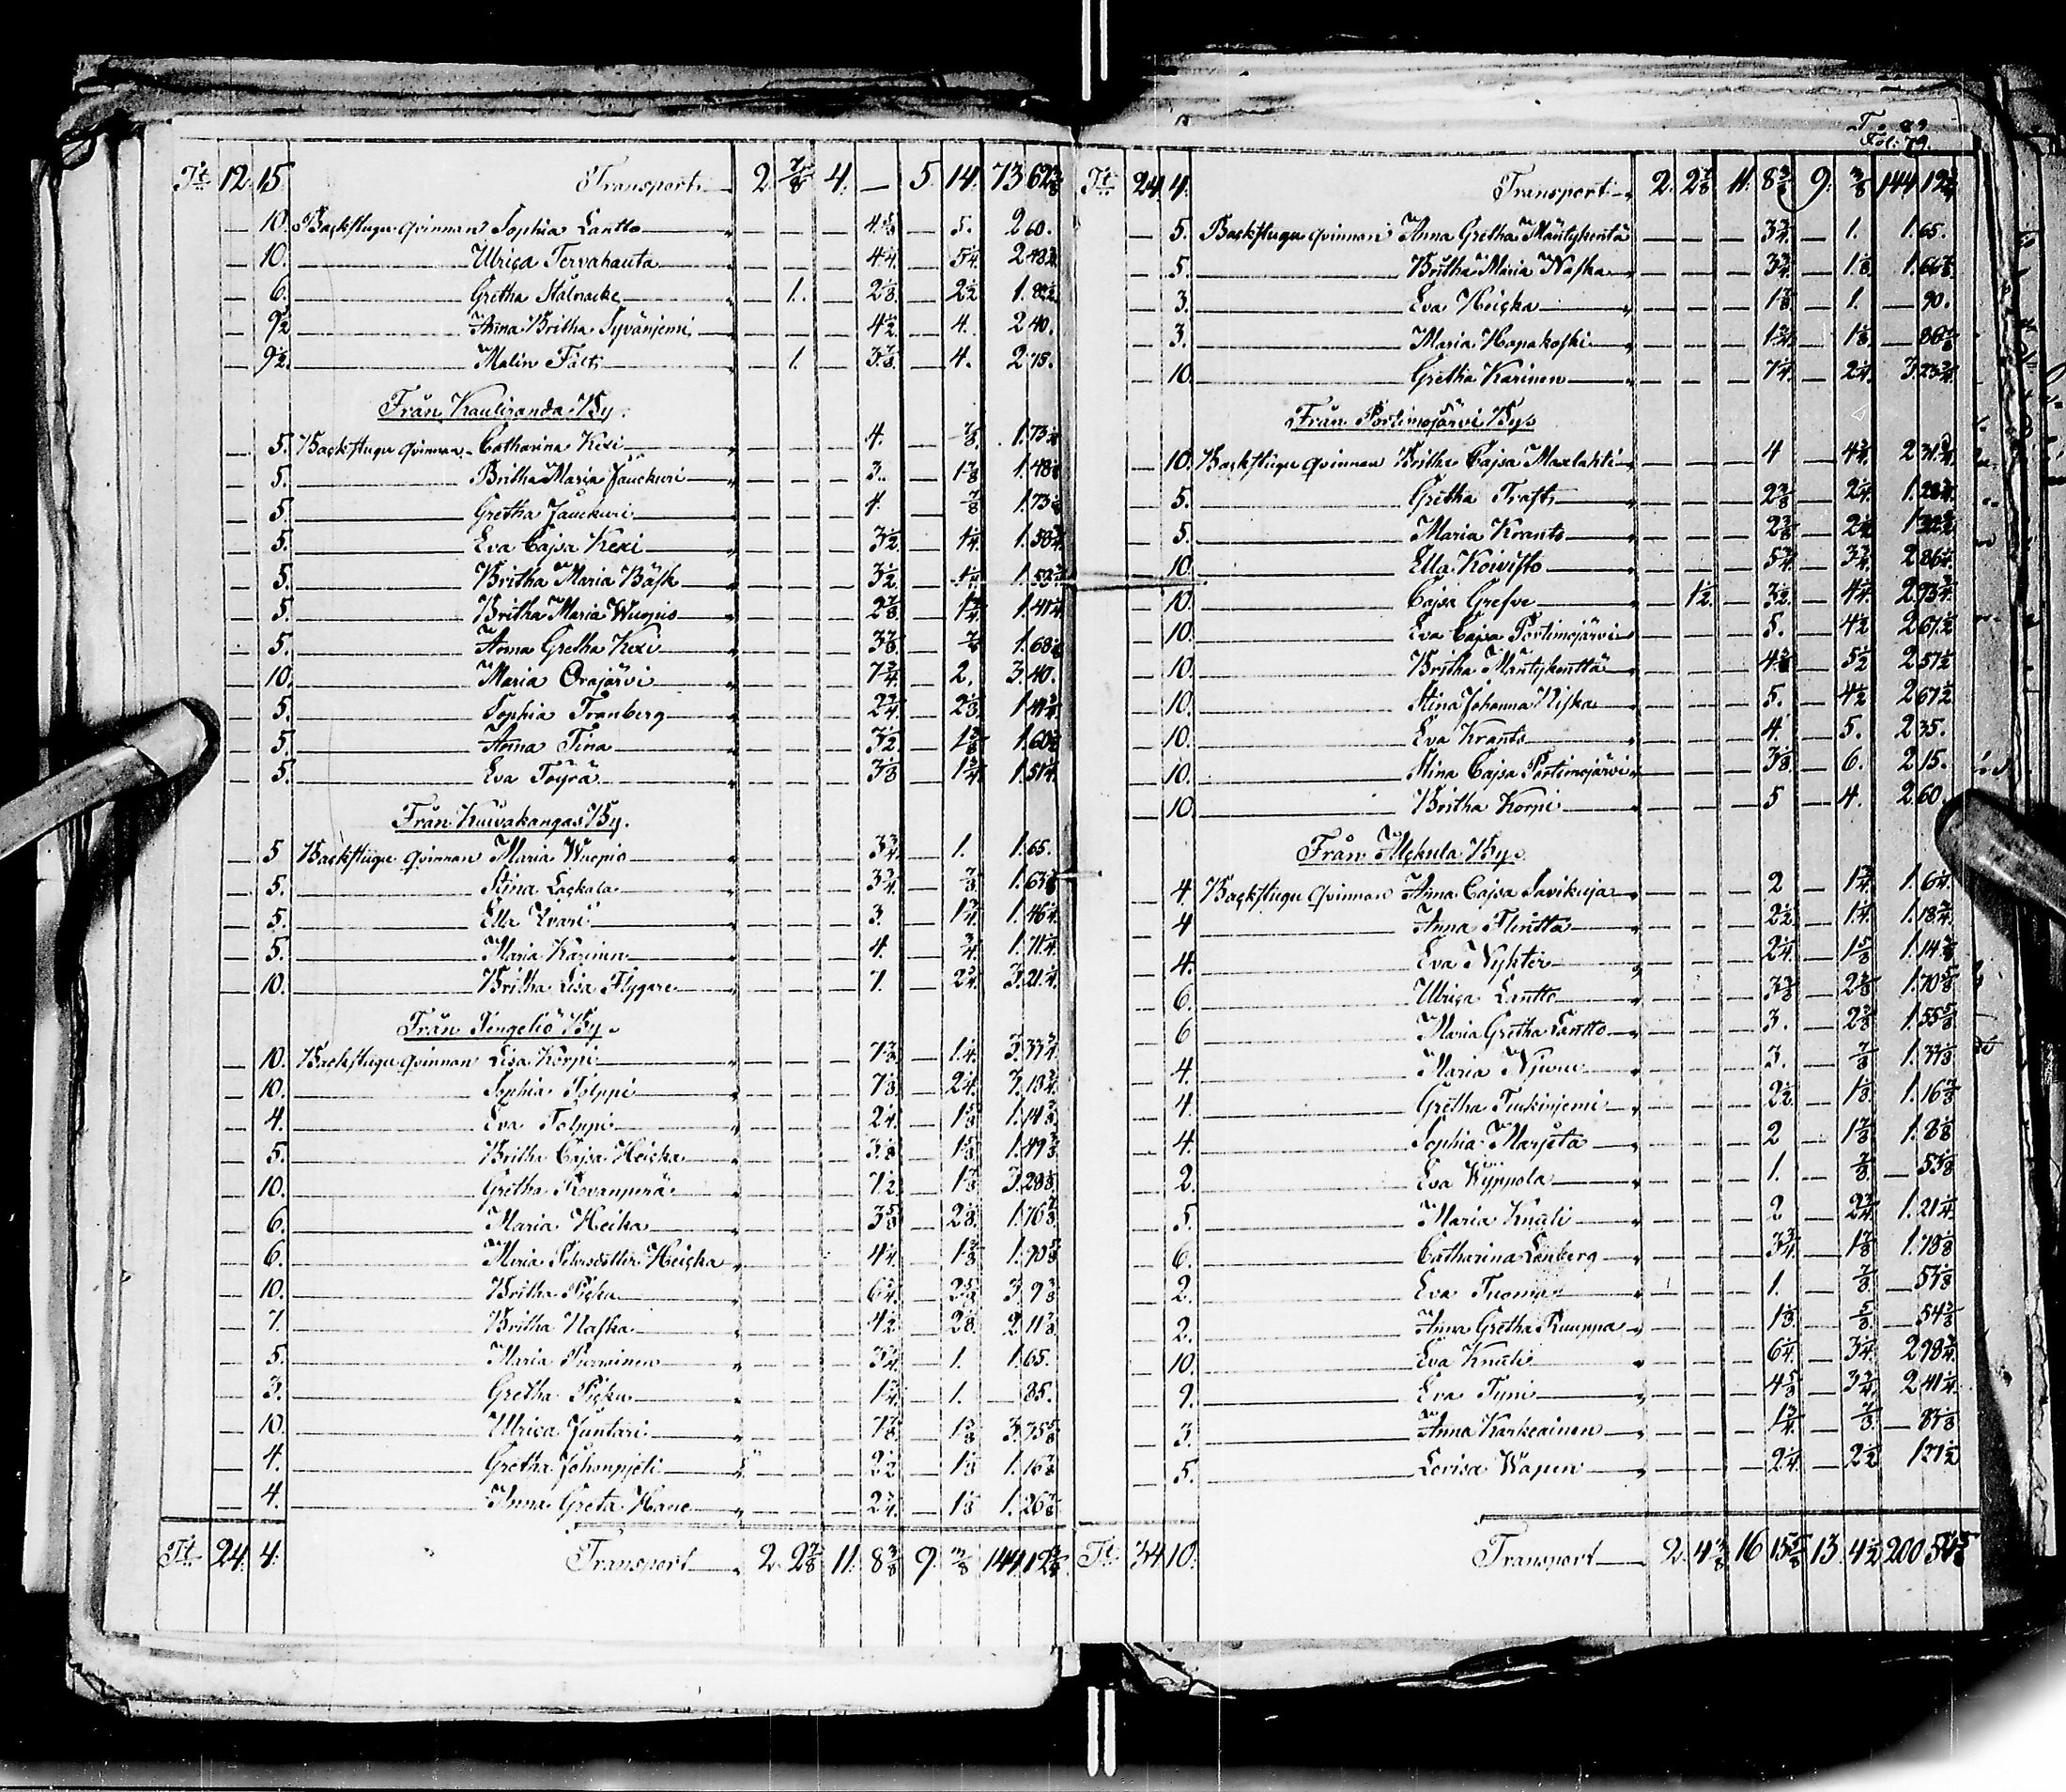 Tt 12. 15. Transport 2. 7/8 4. — 5. 14. 73 62 3/8
— 10. Backstugu qvinnan Sophia Lantto — 4 5/8 — 5. 2 60.
— 10. Ulrica Tervahauta 4 1/4 — 5 1/4 2 48 3/4
— 6. Gretha Stålnacke 1. — 2 1/8 — 2 1/2 1.
— 9 1/2 Anna Britha Syvänjemi 4 1/2 — 4. 2 40.
— 9 1/2 Malin Fält 1. — 3 7/8 — 4. 2 75.
Från Kauliranda By.
— 5. Backstugu qvinnan Catharina Kexi 4. — 7/8 1. 73
— 5. Britha Maria Jauckuri 3. — 1 7/8 1. 48
— 5. Gretha Jauckuri 4. — 7/8 1. 73
— 5. Eva Cajsa Kexi 3 1/2 — 1 1/4 1. 58 3/4
— 5. Britha Maria Bäsk 3 1/2 — 1.
— 5. Britha Maria Wuopio 2 7/8 — 1. 41 1/4
— 5. Anna Gretha Kexi 3 7/8 — 7/8 1. 68
— 10. Maria Orajärvi 7 3/4 — 2. 3. 40.
— 5. Sophia Tranberg 2 3/4 — 2 1/8 1
— 5. Anna Tina 3 1/2 — 1. 60
— 5. Eva Töyrä 3 1/8 — 1 3/4 1. 51 1/4
Från Kuivakangas By.
— 5 Backstugu qvinnan Maria Wuopio 3 3/4 — 1. 1. 65.
— 5. Stina Lackala 3 3/4 — 7/8 1. 63
— 5. Ella Ivari 3 — 1 3/4 1. 46 1/4
— 5. Maria Karinen 4. — 3/4 1. 71 1/4
— 10. Britha Lisa Flygare 7. — 2 3/4 3. 21 1/4
Från Pengeliö By.
— 10. Backstugu qvinnan Lisa Korpi 7 3/8 — 1 1/4 3. 33 3/4
— 10. Sophia Tolppi 7 1/8 — 2 1/4 3. 18 3/4
— 4. Eva Tolppi 2 1/4 — 1 5/8 1. 14 3/8
— 5. Britha Cajsa Heicka 3 1/8 — 1 5/8 1. 49 3/8
— 10. Gretha Rovanperä 7 1/2 — 1 7/8 3. 28 1/8
— 6. Maria Heika 3 5/8 — 2 1/8 1. 76 7/8
— 6. Maria Pehrsdotter Heicka 4 1/4 — 1 3/8 1. 90 5/8
— 10. Britha Picku 6 3/4 — 3 9 3/8
— 7. Britha Naska 4 1/2 — 2 1/8 2 11 7/8
— 5. Maria 3 3/4 — 1. 1. 65.
— 3. Gretha Picku 1 3/4 — 1. — 85.
— 10. Ulrica Juntari 7 7/8 — 1 3/8 3. 35 5/8
— 4. Gretha Johanpieti 2 1/2 — 1 1/8 1. 16 7/8
— 4. Anna Greta Hane 2 3/4 — 1 1/8 1. 26 7/8
Tt 24. 4. Transport 2. 2 7/8 11. 8 3/8 9. 3/8 144 12 3/4
Fol: 79.
Tt 24. 4. Transport 2. 2 7/8 11. 8 3/8 9. 3/8 144 12 3/4
— 5. Backstugu qvinnan Anna Gretha Mäntykentä 3 3/4 — 1. 1. 65.
— 5. Britha Maria Naska 3 3/4 — 1 1/8 1. 66 7/8
— 3. Eva Heicka 1 7/8 — 1. — 90.
— 3. Maria Hapakoski 1 3/4 — 1 1/8 — 86 7/8
— 10. Gretha Karinen 7 1/4 — 2 1/4 3. 23 3/4
Från Portimojärvi By.
— 10. Backstugu qvinnan Britha Cajsa Maxlahti 4 — 4 1/4 2 31 1/4
— 5. Gretha Traft 2 3/8 — 2 1/4 1.
— 5. Maria Krants 2 3/8 — 2 1/2 1
— 10. Ella Koivisto 5 1/4 — 3 3/4 2 86 1/4
— 10. Cajsa Grefve 1 1/2 — 3 1/2 — 4 1/4 2 93 3/4
— 10. Eva Cajsa Portimojärvi 5. — 4 1/2 2 67 1/2
— 10. Britha Mäntykenttä — 5 1/2 2 57 1/2
— 10. Stina Johanna Niska 5. — 4 1/2 2 67 1/2
— 10. Eva Krants 4. — 5. 2 35.
— 10. Stina Cajsa Portimojärvi 3 1/8 — 6. 2 15.
— 10. Britha Korpi 5 — 4. 2 60.
Från Alckula By.
— 4 Backstugu qvinnan Anna Cajsa Savikuja 2 — 1 3/4 1. 6 1/4
— 4 Anna Flinttä 2 1/2 — 1 1/4 1. 18 3/4
— 4. Eva Nykter 2 1/4 — 1 5/8 1. 14 3/8
— 6. Ulrica Lantto 3 3/8 — 2 3/8 1. 70 5/8
— 6 Maria Gretha Lantto 3. — 2 3/8 1. 55 5/8
— 4. Maria 3. — 7/8 1. 33 1/8
— 4. Gretha Tuckinjemi 2 1/2 — 1 1/8 1. 16 7/8
— 4. Sophia Marjeta 2 — 1 7/8 1. 8 1/8
— 2. Eva Wyppola 1. — 7/8 — 53 1/8
— 5. Maria Knuti 2 — 2 3/4 1. 21 1/4
— 6. Catharina Lonberg 3 3/4 — 1 7/8 1. 78 1/8
— 2. Eva 1. — 7/8 — 53 1/8
— 2. Anna Gretha Ruuppa 1 1/8 — 5/8 — 54 3/8
— 10. Eva Knuti 6 1/4 — 3 1/4 2 98 3/4
— 9. Eva Tuni 4 5/8 — 3 3/4 2 41 1/4
— 3. Anna Karkeainen 1 3/4 — 7/8 — 83 1/8
— 5. Lovisa Wapen 2 1/4 — 2 1/2 1. 27 1/2
Tt 34 10. Transport 2. 4 3/8 16 15 5/8 13. 4 1/2 200